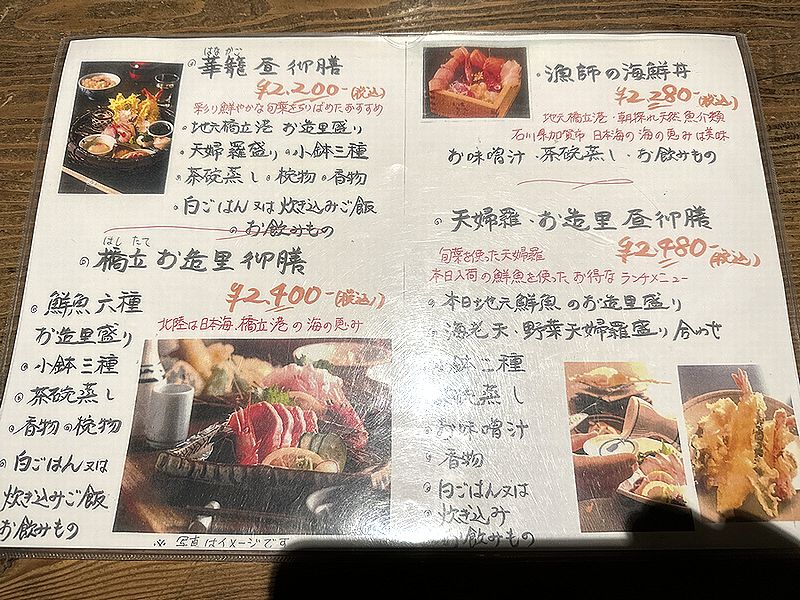 はなかご
華籠 昼御膳
¥2,200-(税込)
彩り鮮やかな旬菜をちりばめたおすすめ
・地元橋立港 お造里盛り
・天婦羅盛り ・小鉢三種
・茶碗蒸し ・椀物 ・香物
・白ごはん又は炊き込みご飯
・お飲みもの
はしたて
橋立お造里御膳
¥2,400-(税込)
北陸は日本海、橋立港の海の恵み
・鮮魚六種
お造里盛り
・小鉢三種
・茶碗蒸し
・香物 ・椀物
・白ごはん又は
炊き込みご飯
お飲みもの
写真はイメージです。
・漁師の海鮮丼
¥2,280-(税込)
地元橋立港・朝採れ天然魚介類
石川県加賀市 日本海の海の恵み美味
お味噌汁・茶碗蒸し・お飲みもの
・天婦羅・お造里 昼御膳
¥2,480-(税込)
旬菜を使った天婦羅
本日入荷の鮮魚を使ったお得なランチメニュー
・本日地元鮮魚のお造里盛り
・海老天・野菜天婦羅盛り合わせ
小鉢二種
茶碗蒸し
・お味噌汁
・香物
・白ごはん又は
・炊き込み
お飲みもの